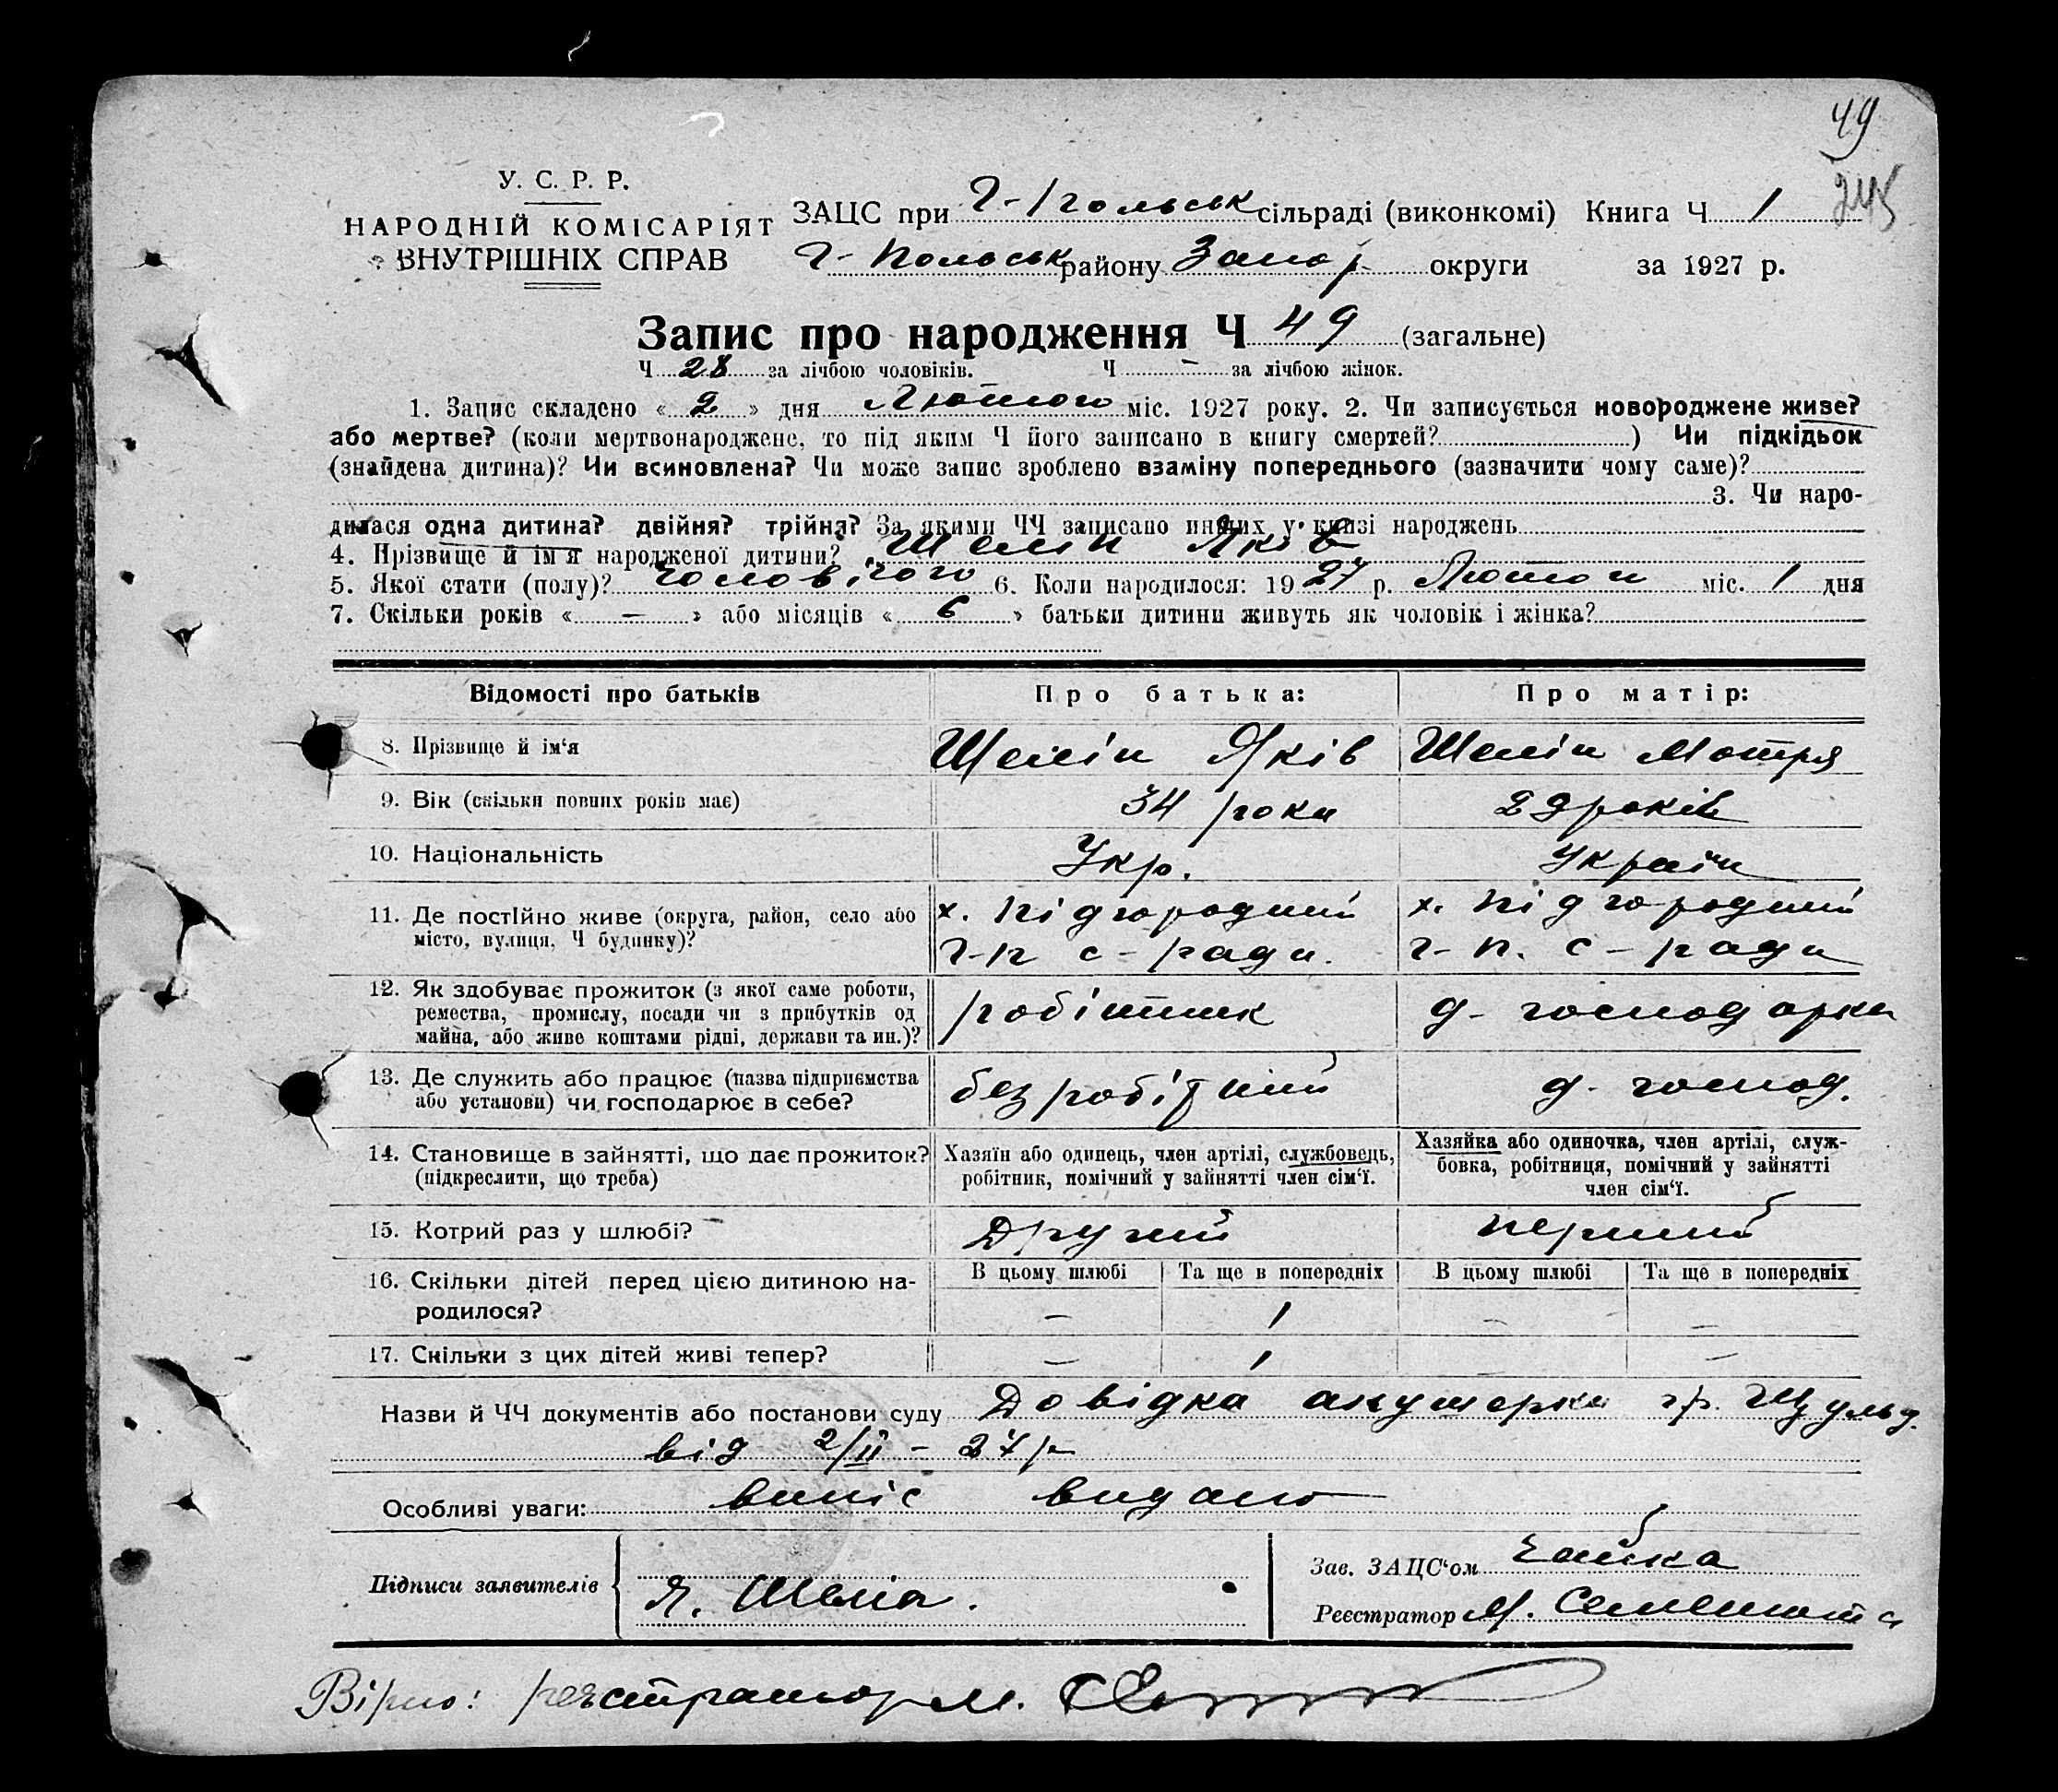 49
245
У. С. Р. Р.
НАРОДНІЙ КОМІСАРІЯТ
ВНУТРІШНІХ СПРАВ
ЗАЦС при Г-Польськ сільраді (виконкомі) Книга Ч 1
Г-Польськ району Запор округи за 1927 р.
Запис про народження Ч 49 (загальне)
Ч 28 за лічбою чоловіків. Ч - за лічбою жінок.
1. Запис складено « 2 » дня Лютого міс. 1927 року. 2. Чи записується новороджене живе?
або мертве? (коли мертвонароджене, то під яким Ч його записано в книгу смертей? ) Чи підкідьок
(знайдена дитина)? Чи всиновлена? Чи може запис зроблено взаміну попереднього (зазначити чому саме)?
3. Чи наро-
дилася одна дитина? двійня? трійня? За якими ЧЧ записано инших у книзі народжень
4. Прізвище й ім'я народженої дитини? Шелін Яків
5. Якої стати (полу)? чоловічого 6. Коли народилося: 1927 р. Лютого міс. 1 дня
7. Скільки років « — » або місяців « 6 » батьки дитини живуть як чоловік і жінка?
Відомості про батьків Про батька: Про матір:
8. Прізвище й ім'я Шелін Яків Шелін Мотря
9. Вік (скільки повних років має) 34 роки 29 років
10. Національність Укр. Україн
11. Де постійно живе (округа, район, село або місто, вулиця, Ч будинку)? х. Підгородний х. Підгородний
Г-П с-ради. Г-П. с-ради
12. Як здобуває прожиток (з якої саме роботи, ремества, промислу, посади чи з прибутків од майна, або живе коштами рідні, держави та ин.)? робітник д. господарка
13. Де служить або працює (назва підприємства або установи) чи господарює в себе? безробітний д. господ.
14. Становище в зайнятті, що дає прожиток? (підкреслити, що треба) Хазяїн або одинець, член артілі, службовець, робітник, помічний у зайнятті член сім'ї. Хазяйка або одиночка, член артілі, служ-
бовка, робітниця, помічний у зайнятті
член сім'ї.
15. Котрий раз у шлюбі? Другий перший
16. Скільки дітей перед цією дитиною на-
родилося? В цьому шлюбі Та ще в попередніх В цьому шлюбі Та ще в попередніх
— 1 — —
17. Скільки з цих дітей живі тепер? — 1 —
Назви й ЧЧ документів або постанови суду Довідка акушерки гр. Шульд.
від 2/II - 27 р
Особливі уваги: випіс видано
Підписи заявителів Я. Шелін. Зав. ЗАЦС'ом Чайка
Реєстратор М.
Вірно: реєстратор М.